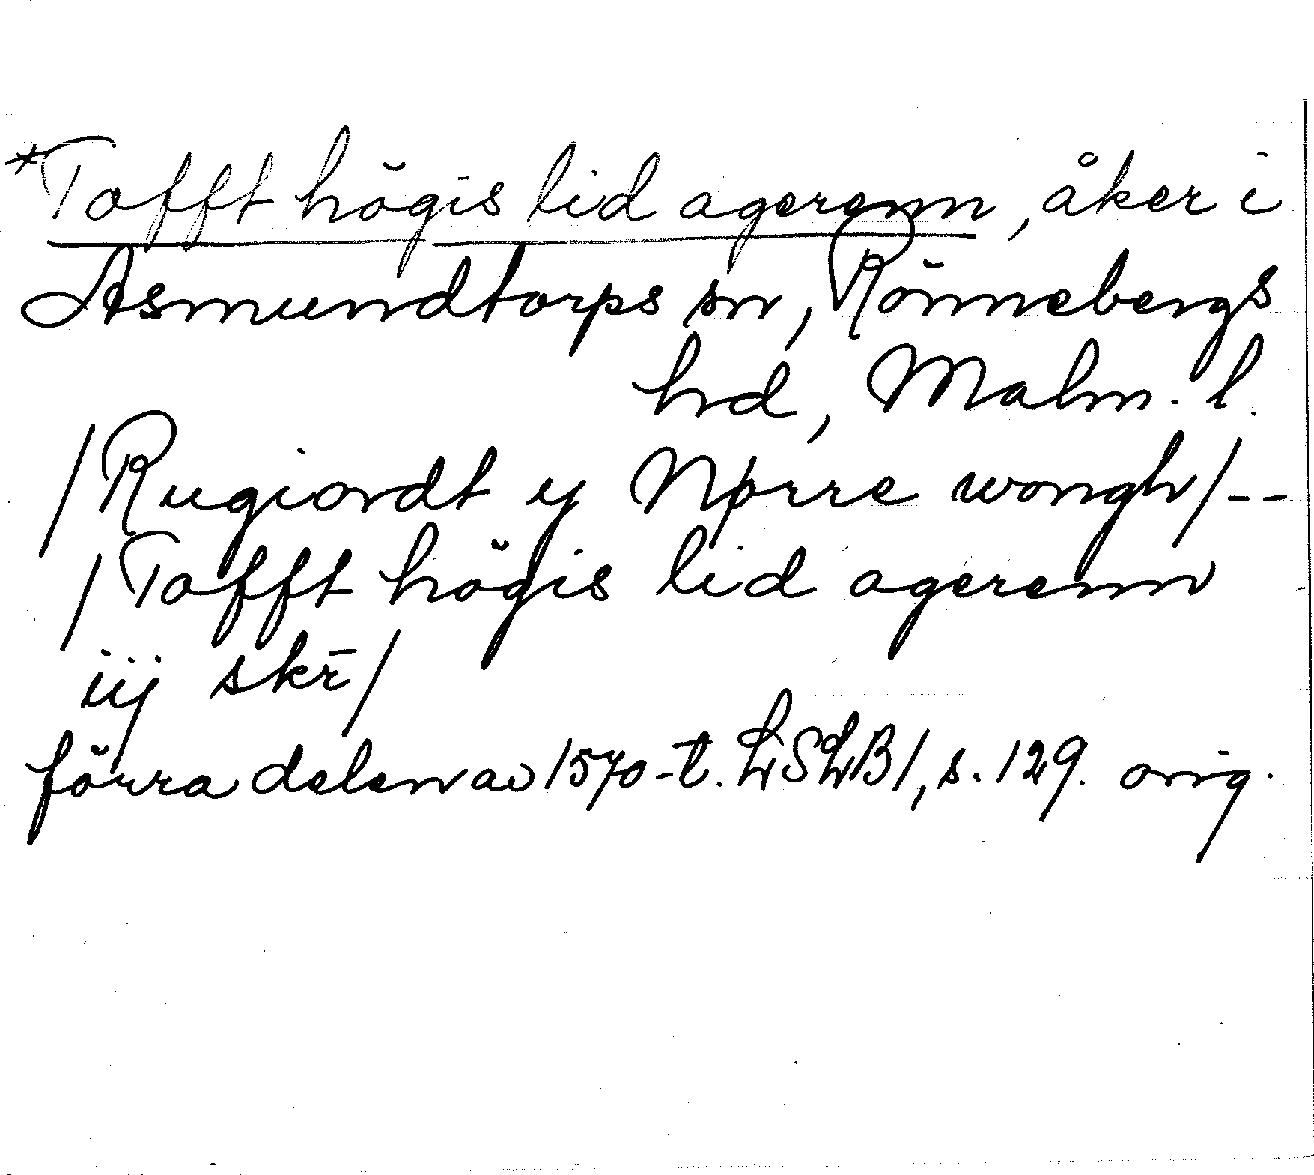 *Tofft högis lid agerenn, åker i
Asmundtorps sn, Rönnebergs
hd, Malm. l.
/Rugiordt y Nørre wongh/--
/Tofft högis lid agerenn
iij skr̄/
förra delen av 1570-t. LSLB1, s. 129. orig.